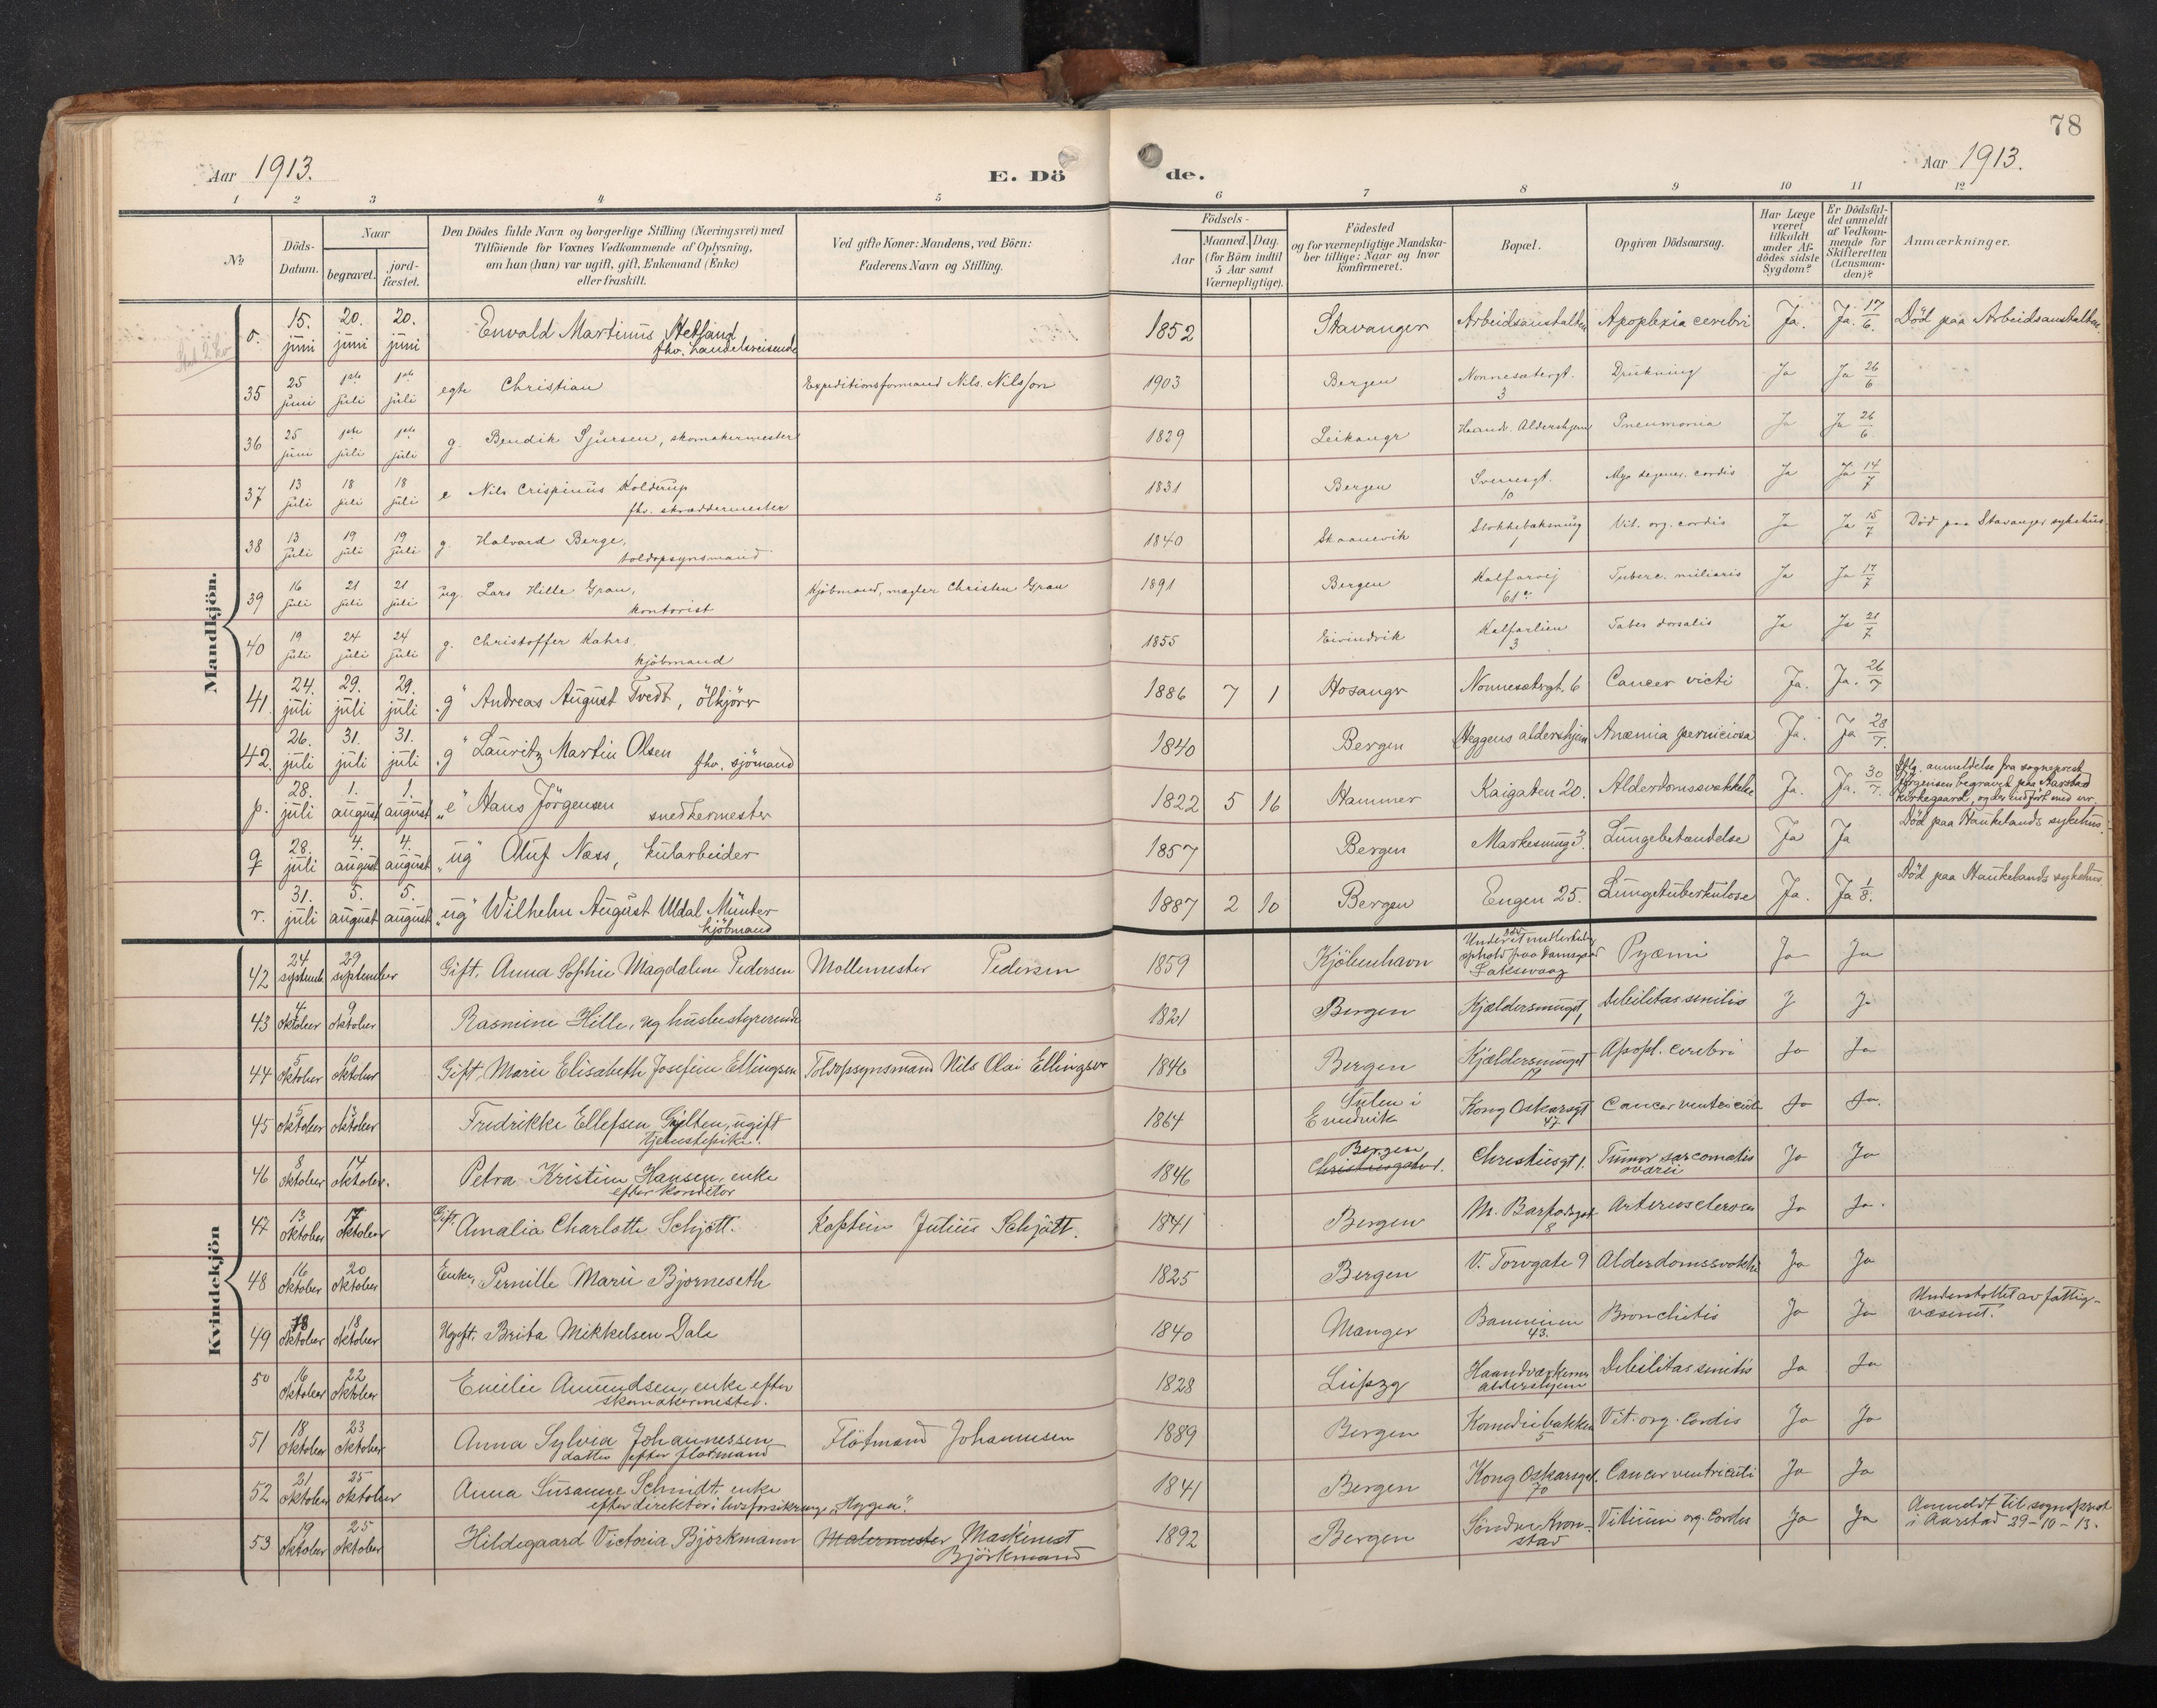 78
Aar 1913.
E. Dö de.
Aar 1913.
1 2 3 4 5 6 7 8 9 10 11 12
No
Döds-Datum.
Naar
begravet.
jord-fæstet.
Den Dödes fulde Navn og borgerlige Stilling (Næringsvei) med
Tilföiende for Voxnes Vedkommende af Oplysning,
om han (hun) var ugift, gift, Enkemand (Enke)
eller fraskilt.
Ved gifte Koner: Mandens, ved Börn:
Faderens Navn og Stilling.
Födsels-
Aar
Maaned. Dag.
(for Börn indtil
5 Aar samt
Værnepligtige).
Födested
og for værnepligtige Mandska-
ber tillige: Naar og hvor
konfirmeret.
Bopæl.
Opgiven Dödsaarsag.
Har Læge
været
tilkaldt
under Af-
dödes sidste
Sygdom?
Er Dödsfal-
det anmeldt
af Vedkom-
mende for
Skifteretten
(Lensman-
den)?
Anmærkninger.
Mandkjön.
o. 15. juni 20. juni 20. juni Envald Martinus Hetland fhv. handelsreisende 1852 Stavanger Arbeidsanstalten Apoplexia cerebri Ja. Ja. 17/6. Död paa Arbeidsanstalten.
35 25 juni 1ste juli 1ste juli egte Christian Expeditionsformand Nils Nilsson 1903 Bergen Nonnesætergt. 3 Drukning Ja Ja 26/6
36 25 juni 1ste juli 1ste juli g. Bendik Sjursen, skomakermester 1829 Leikangr Haandv. Aldershjem Pneumonia Ja Ja 26/6.
37 13 juli 18 juli 18 juli e Nils Crispinus Kolderup fhv. skræddermester 1831 Bergen Sverresgt. 10 Myo degener. cordis Ja Ja 14/7
38 13 juli 19 juli 19 juli g. Halvard Berge, toldopsynsmand 1840 Skaanevik 1 Vit. org. cordis Ja Ja 15/7 Död paa Stavanger sykehus.
39 16 juli 21 juli 21 juli ug. Lars Hille Gran, kontorist Kjöbmand, mægler Christen Gran 1891 Bergen Kalfarvej 61a Tuberc. miliaris Ja Ja 17/7
40 19 juli 24 juli 24 juli g. Christoffer Kahrs, kjöbmand 1855 Eivindvik Kalfarlien 3 Tabes dorsalis Ja Ja 21/7
41. 24. juli 29. juli 29. juli "g" Andreas August Tvedt, ölkjörer 1886 7 1 Hosangr Nonnesætergt. 6 Cancer victi Ja. Ja. 26/7
42. 26. juli 31. juli 31. juli "g" Lauritz Martin Olsen fhv. sjömand 1840 Bergen Heggens aldershjem Anæmia perniciosa Ja. Ja 28/7.
p. 28. juli 1. august 1. august "e" Hans Jörgensen snedkermester 1822 5 16 Hammer Kaigaten 20. Alderdomssvækkelse Ja. Ja. 30/7. Iflg. anmeldelse fra sogneprest
Jörgensen begravet paa Aarstad
kirkegaard, og der indfört med nr.
q 28. juli 4. august 4. august "ug" Oluf Næss, kularbeider 1857 Bergen Markesmug 3. Lungebetændelse Ja Ja Död paa Haukelands sykehus.
r. 31. juli 5. august 5. august "ug" Wilhelm August Uldal Münter kjöbmand 1887 2 10 Bergen Engen 25. Lungetuberkulose Ja. Ja 1/8. Död paa Haukelands sykehus.
Kvindekjön
42 24 septemb. 29 september Gift. Anna Sophie Magdalene Pedersen Mollemester Pedersen 1859 Kjöbenhavn Under et midlertidig ophold paa Damsgaard Laksevaag Pyæmi Ja Ja
43 4 oktober 9 oktober Rasmine Hille, ug husbestyrerinde 1821 Bergen Kjældersmuget, 1 Debilitas senilis J J
44 5 oktober 10 oktober Gift, Marie Elisabeth Josefine Ellingsen Toldopsynsmand Nils Olai Ellingsen 1846 Bergen Kjældersmuget 17 Apopl. cerebri Ja Ja
45 5 oktober oktober Fredrikke Ellefsen Gylten, ugift tjenestepike. 1864 Sulen i Evindvik Kong Oskarsgt 47. Cancer ventriculi Ja Ja.
46 8 oktober 14 oktober. Petra Kristine Hansen, enke efter konditor 1846 Bergen, Christiesgate 1. Christiesgt 1. Tumor sarcomatis ovarii Ja Ja
47 13 oktober 17 oktober Gift. Amalia Charlotte Schjött. Kaptein Julius Schjött. 1841 Bergen 8 Arteriosclerose Ja Ja.
48 16 oktober 20 oktober Enke, Pernille Marie Bjorneseth 1825 Bergen V. Torvgate 9 Alderdomssvækk Ja Ja
49 oktober 18 oktober Ugift. Brita Mikkelsen Dale 1840 Manger 43. Bronchitis Ja Ja Understottet av fattig-
væsenet.
50 16 oktober 22 oktober Emilie Amundsen, enke efter skomakermester. 1828 Leipzg Haandværkernes aldershjem Debilitas senilis Ja Ja
51 18 oktober 23 oktober Anna Sylvia Johannessen datter efter flotmand Flötmand Johannesen 1889 Bergen Komediebakken 5 Vit. org. Cordis Ja Ja
52 21 oktober 25 oktober Anna Susanne Schmidt, enke efter direktör i livsforsikrings „Hygea". 1841 Bergen Kong Oskarsgt. 70 Cancer ventriculi Ja Ja
53 19 oktober 25 oktober Hildegaard Victoria Björkmann Malermester Maskinist Björkmand 1892 Bergen Söndre Kron-
stad Vitium org. Cordis Ja Ja Anmeldt til sogneprest
i Aarstad 29-10-13.